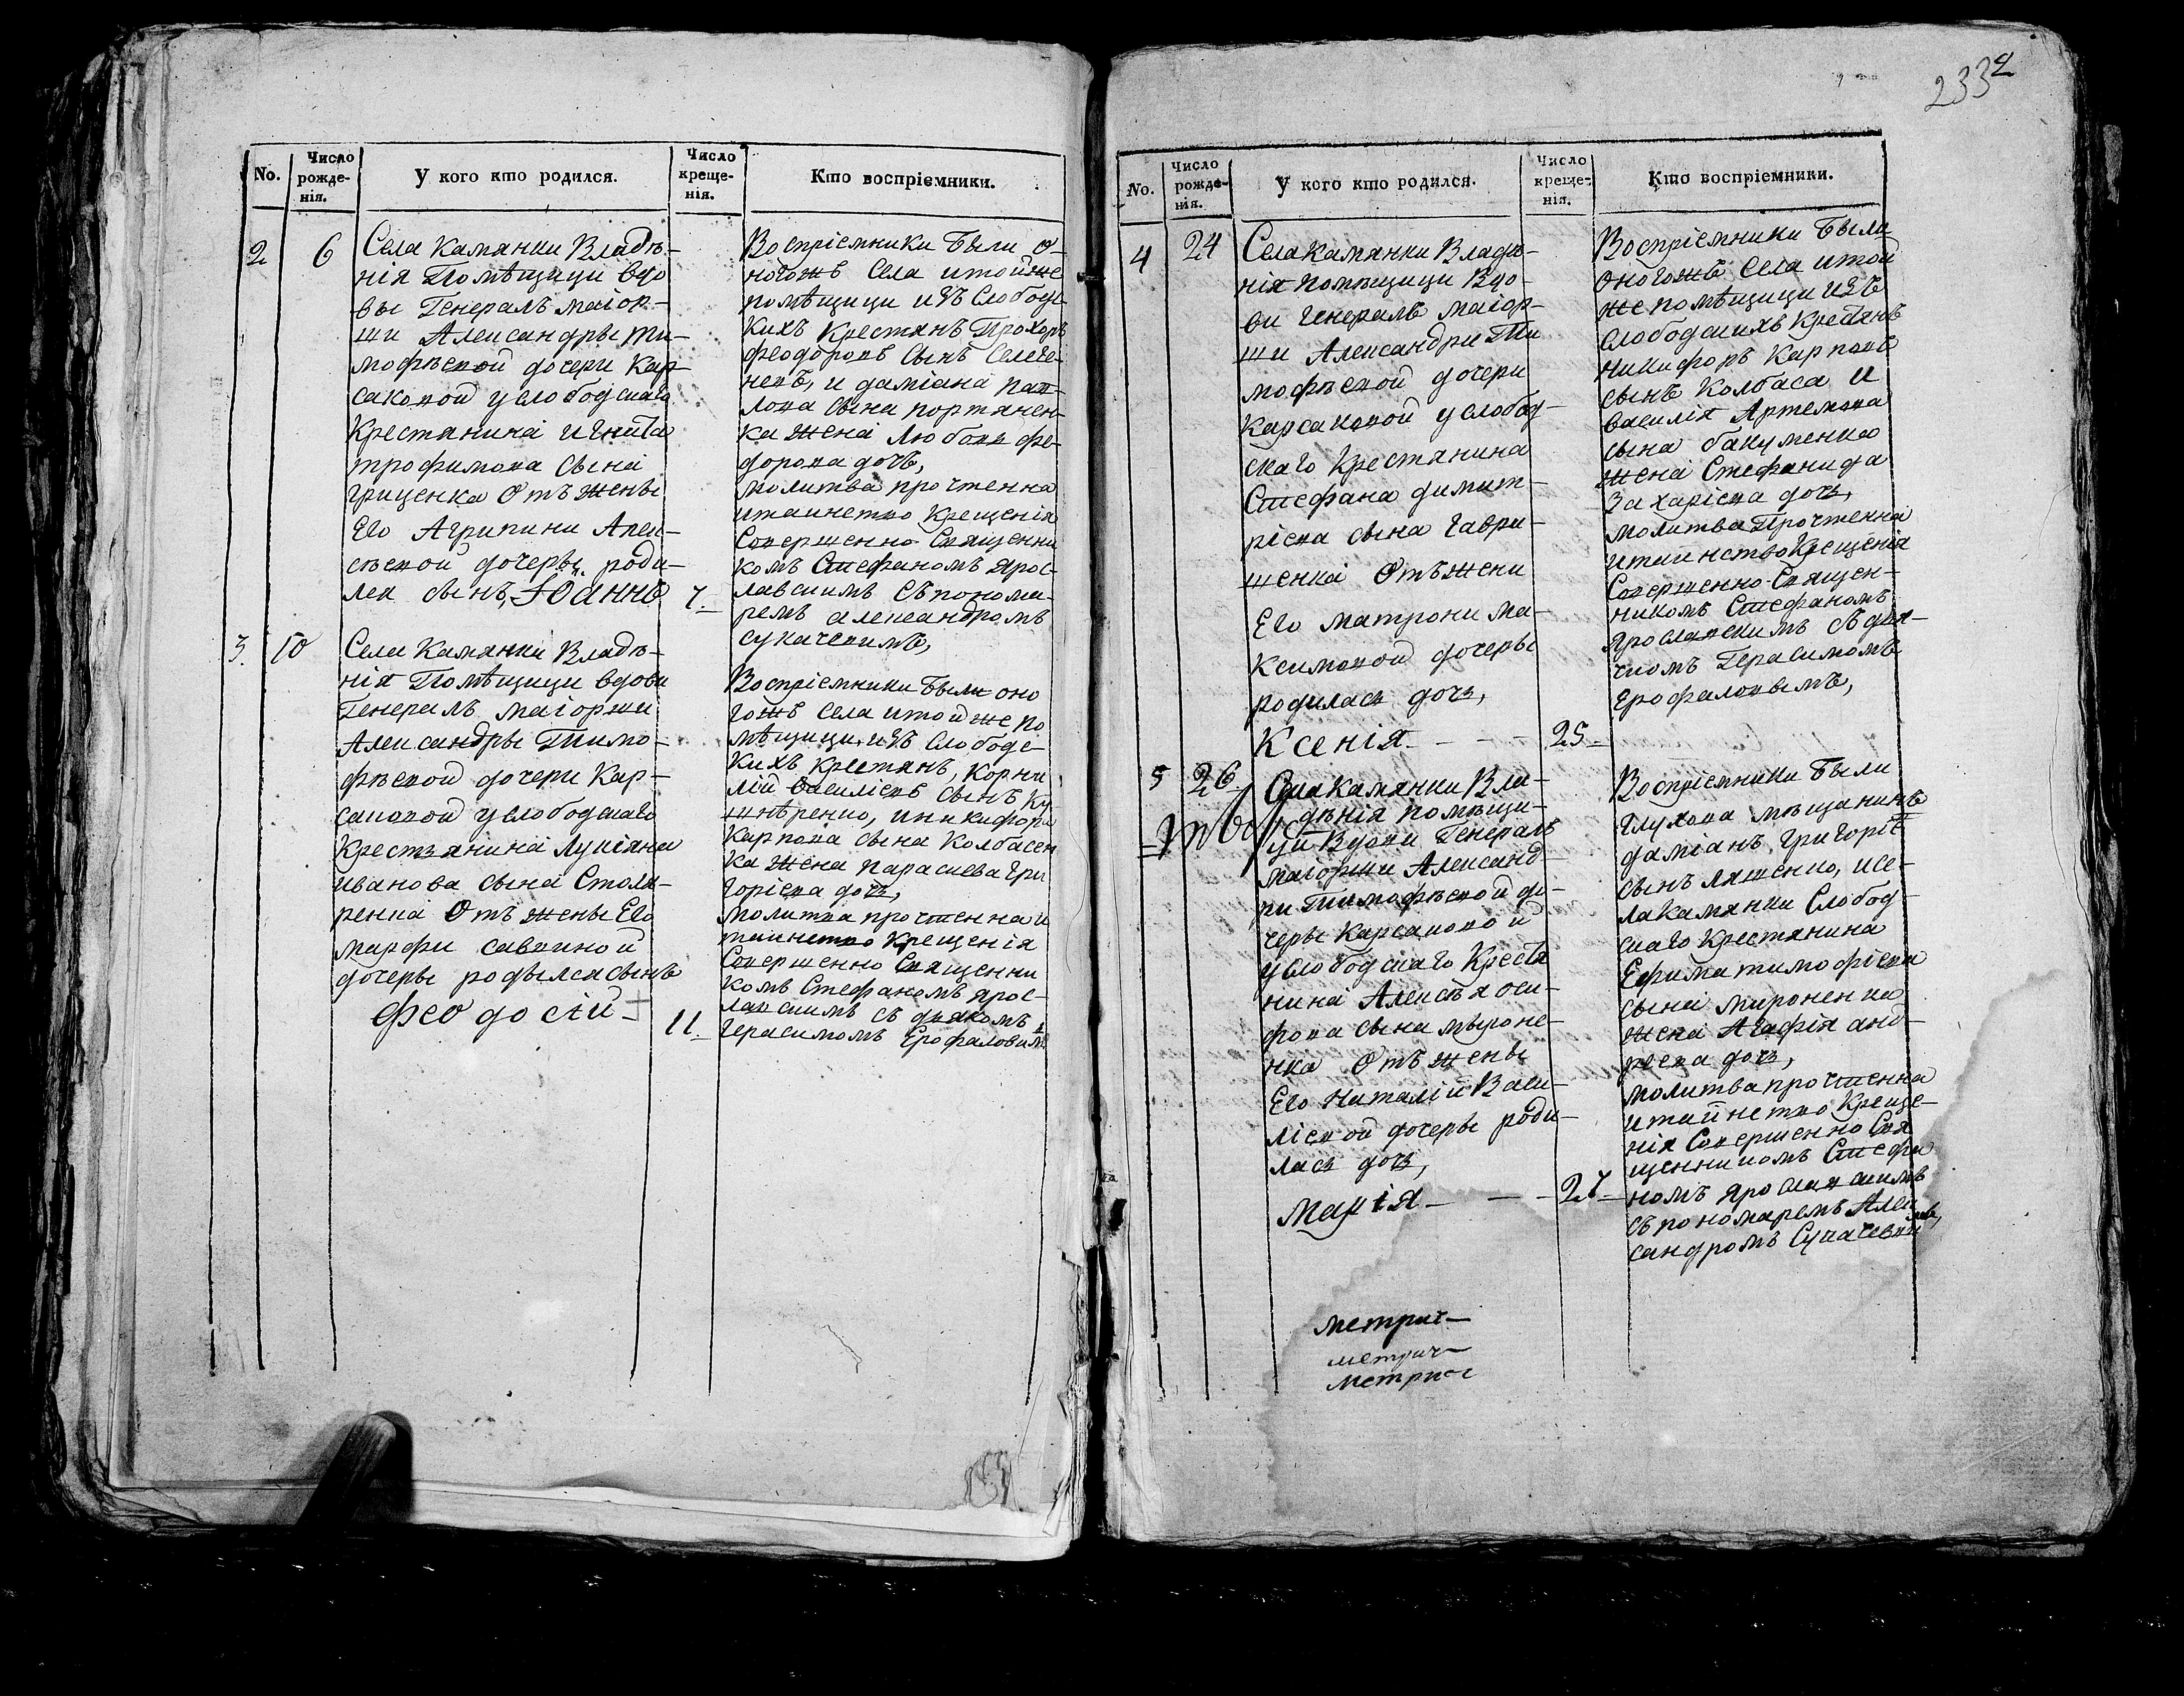 2332
No.
Число рожде-нія.
У кого кто родился.
Число креще-нія.
Кто воспріемники.
2
6
Села Камянки Владѣ-
нія Помѣщици вдо
вы Генералъ маіор-
ши Александры ти-
мофѣевой дочери Кар-
саковой у слободскаго
Крестянина Игната
трофимова сына
грищенка Отъ жены
Его Агрипини Алек-
сѣевой дочеры роди-
лся сынъ, Іоаннъ
7.
Воспріемники были о-
ногожъ Села итойже
помѣщици изъ Слободс-
кихъ Крестянъ Прохоръ
феодоровъ Сынъ Селеге-
невъ, и даміана пав-
лова сына портянен-
ка жена Любовъ фе-
дорова дочь,
молитва прочтенна
итаинство Крещенія
Совершенно Священни
комъ Стефаномъ Ярос-
лавскимъ Съ понома-
ремъ александромъ
сукачевимъ,
3.
10
Села Камянки Владѣ-
нія Помѣщици вдови
Генералъ маіорши
Александры Тимо-
фѣевой дочери Кар-
саковой у слободскаго
Крестьянина Лукіяна
иванова сына Столя-
ренка Отъ жены Его
марфи саввиной
дочеры родылся сынъ
Феодосій-
11.
Воспріемники были оно
гожъ села итойже по
мѣщици, изъ Слободс-
кихъ крестянъ, Корни
лій василіевъ сынъ Ку
шнѣренко, иникифора
Карпова сына Колбасен
ка жена параскева гри
горіева дочь,
молитва прочтенна и
таинство Крещенія
Совершенно Священни
комъ Стефаномъ Ярос-
лавскимъ съ дьякомъ
Герасимомъ Ерофаловимъ
No.
Число рожде-нія.
У кого кто родился.
Число креще-нія.
Кто воспріемники.
4
24
Села Камянки Владѣ-
нія помѣщици Вдо-
ви Генералъ маіор-
ши Александри Ти
мофѣевой дочери
Карсаковой у слобод-
скаго Крестянина
Стефана димит-
ріева сына гаври-
шенка Отъ жени
Его матрони ма-
ксимовой дочеры
родилась дочь,
Ксенія - - -
25-
Воспріемники были
оногожъ Села итой
же помѣщици изъ
слободскихъ Крестянъ
никифоръ Карповъ
сынъ Колбаса и
василія Артемова
сына бакуменка
жена Стефанида
Захаріева дочь,
молитва Прочтенна
итаинство Крещенія
Совершенно Священ-
никомъ Стефаномъ
Ярославскимъ Съ дья-
чкомъ Герасимомъ
Ерофаловымъ,
5
26
Села Камянки Вла-
дѣнія помѣщи-
ци Вдови Генералъ
маіорши Александ-
ри Тимофѣевой до-
черы Карсаковой
у слободскаго Крестя
нина Алексѣя оси-
фова сына мыроне-
нка Отъ жены
Его Наталіи Васи-
ліевой дочеры роди-
лась дочь,
Марія - - -
27-
Воспріемники были
глухова мѣщанинъ
даміанъ григоріевъ
сынъ ляшенко, исе-
ла камянки Слобод-
скаго Крестянина
Ефима тимофіева
сына мироненка
жена Агафія анд-
реева дочь,
молитва прочтенна
итайнство Креще-
нія Совершенно Свя
щенникомъ Стефа
номъ Ярославскимъ
съ пономаремъ Алек
сандромъ Сукачевимъ,
метрич-
метрич-
Метрич